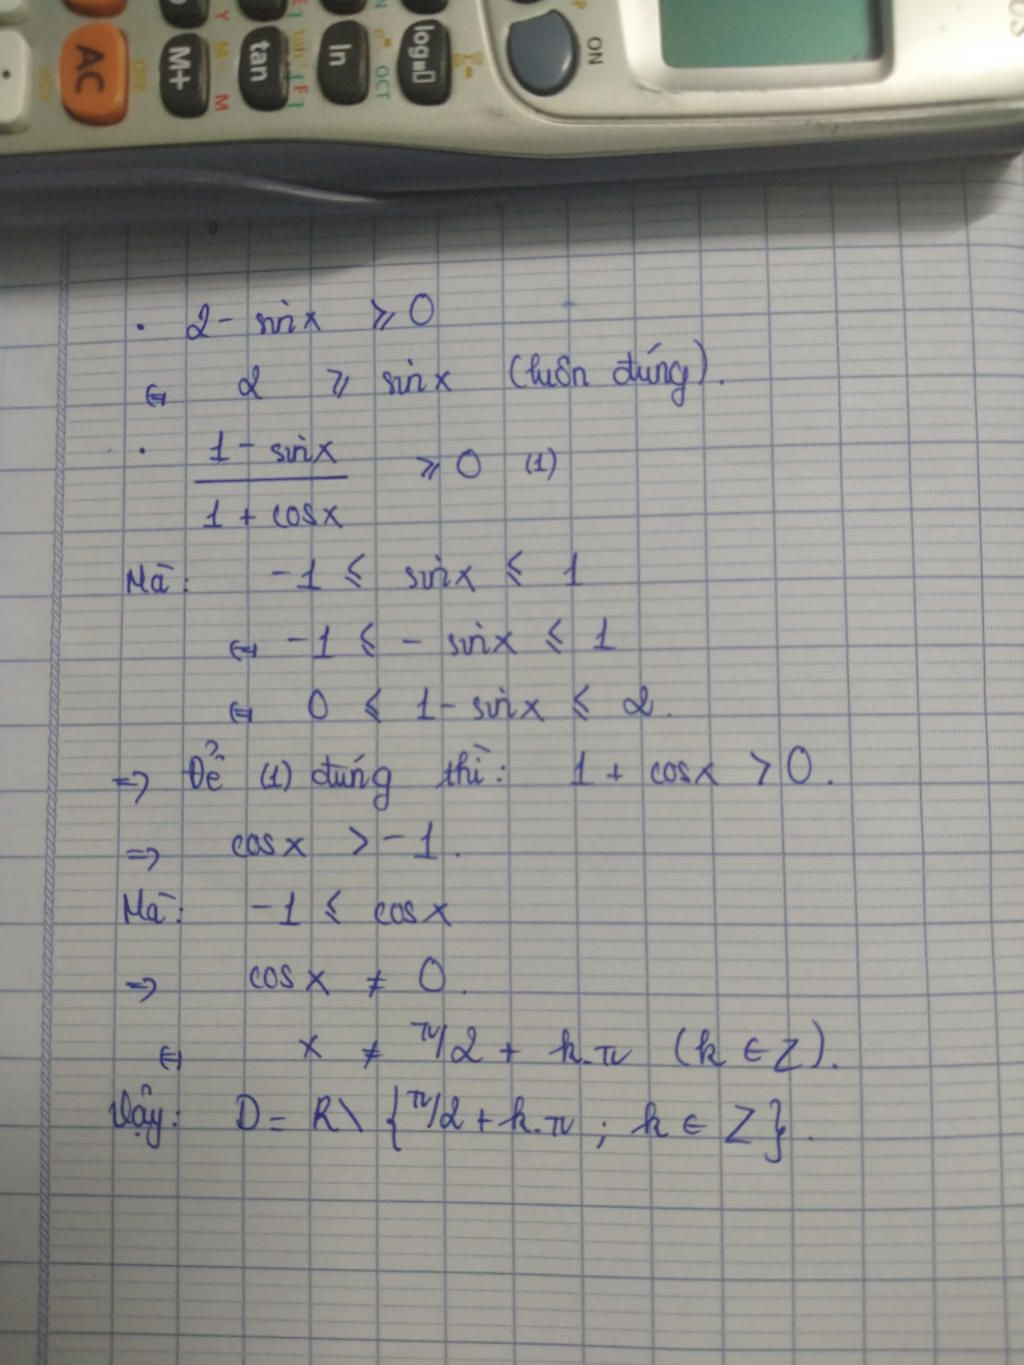 AC
M+
tan
ln
log
ON
OCT
M
Y
. 2 - sin x ⩾ 0
⇔ 2 ⩾ sin x (luôn đúng).
. 1 - sin x
⩾ 0 (1)
1 + cos x
Mà: -1 ⩽ sin x ⩽ 1
⇔ -1 ⩽ - sin x ⩽ 1
⇔ 0 ⩽ 1 - sin x ⩽ 2.
=> Để (1) đúng thì: 1 + cos x > 0.
=> cos x > -1.
Mà: -1 ⩽ cos x
=> cos x ≠ 0.
⇔ x ≠ π/2 + k.π (k ∈ Z).
Vậy: D = R \ {π/2 + k.π ; k ∈ Z}.